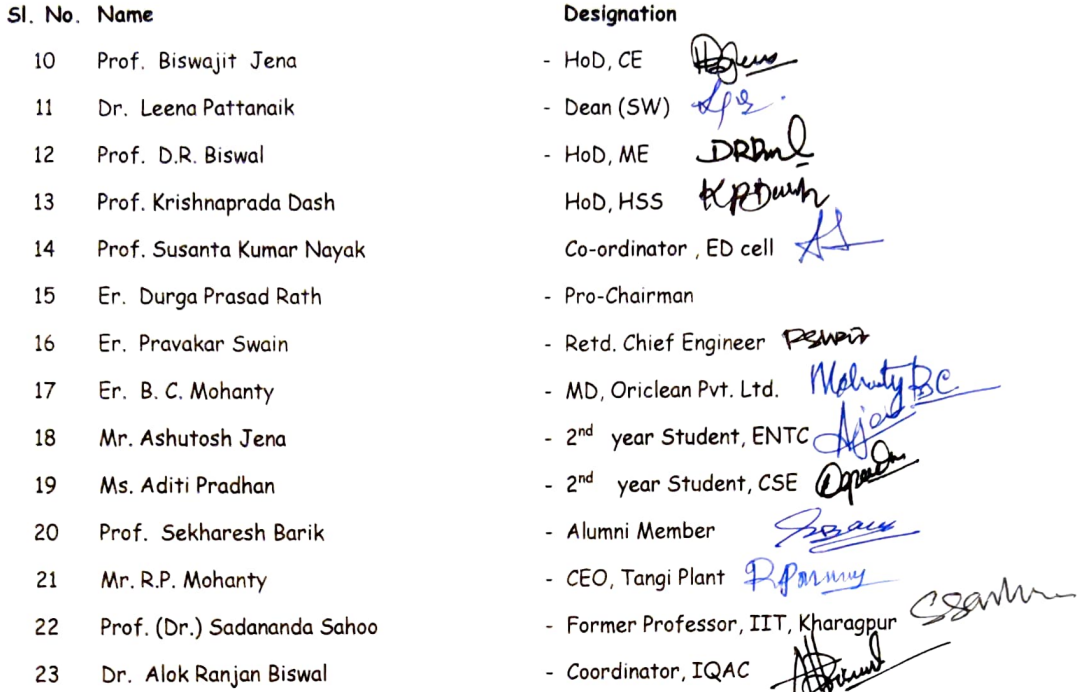 Sl. No. Name Designation
10 Prof. Biswajit Jena - HoD, CE
11 Dr. Leena Pattanaik - Dean (SW)
12 Prof. D.R. Biswal - HoD, ME
13 Prof. Krishnaprada Dash HoD, HSS KPDash
14 Prof. Susanta Kumar Nayak Co-ordinator , ED cell
15 Er. Durga Prasad Rath - Pro-Chairman
16 Er. Pravakar Swain - Retd. Chief Engineer
17 Er. B. C. Mohanty - MD, Oriclean Pvt. Ltd. Mohanty BC
18 Mr. Ashutosh Jena - 2nd year Student, ENTC
19 Ms. Aditi Pradhan - 2nd year Student, CSE
20 Prof. Sekharesh Barik - Alumni Member
21 Mr. R.P. Mohanty - CEO, Tangi Plant
22 Prof. (Dr.) Sadananda Sahoo - Former Professor, IIT, Kharagpur
23 Dr. Alok Ranjan Biswal - Coordinator, IQAC